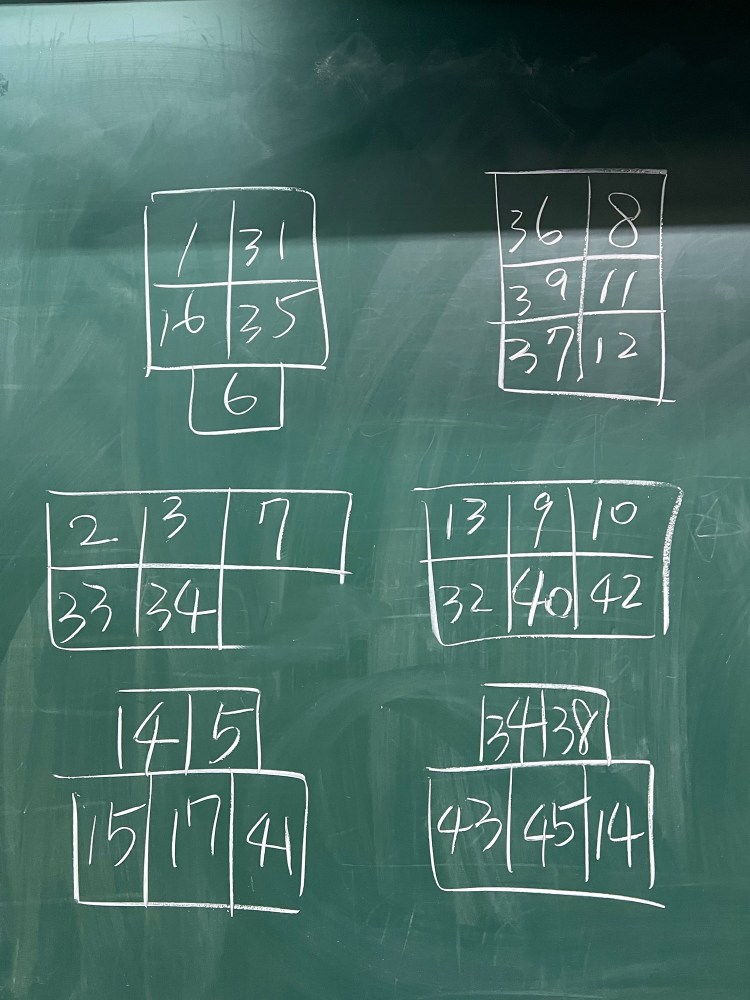 1 31
16 35
6
36 8
39 11
37 12
2 3 7
33 34
13 9 10
32 40 42
14 5
15 17 41
34 38
43 45 14